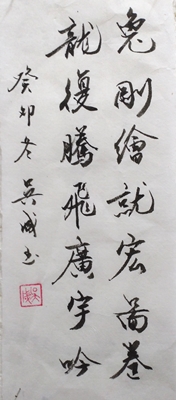 兔剛繪就宏啚卷
龍復騰飛廣宇吟
癸卯冬吳成玉